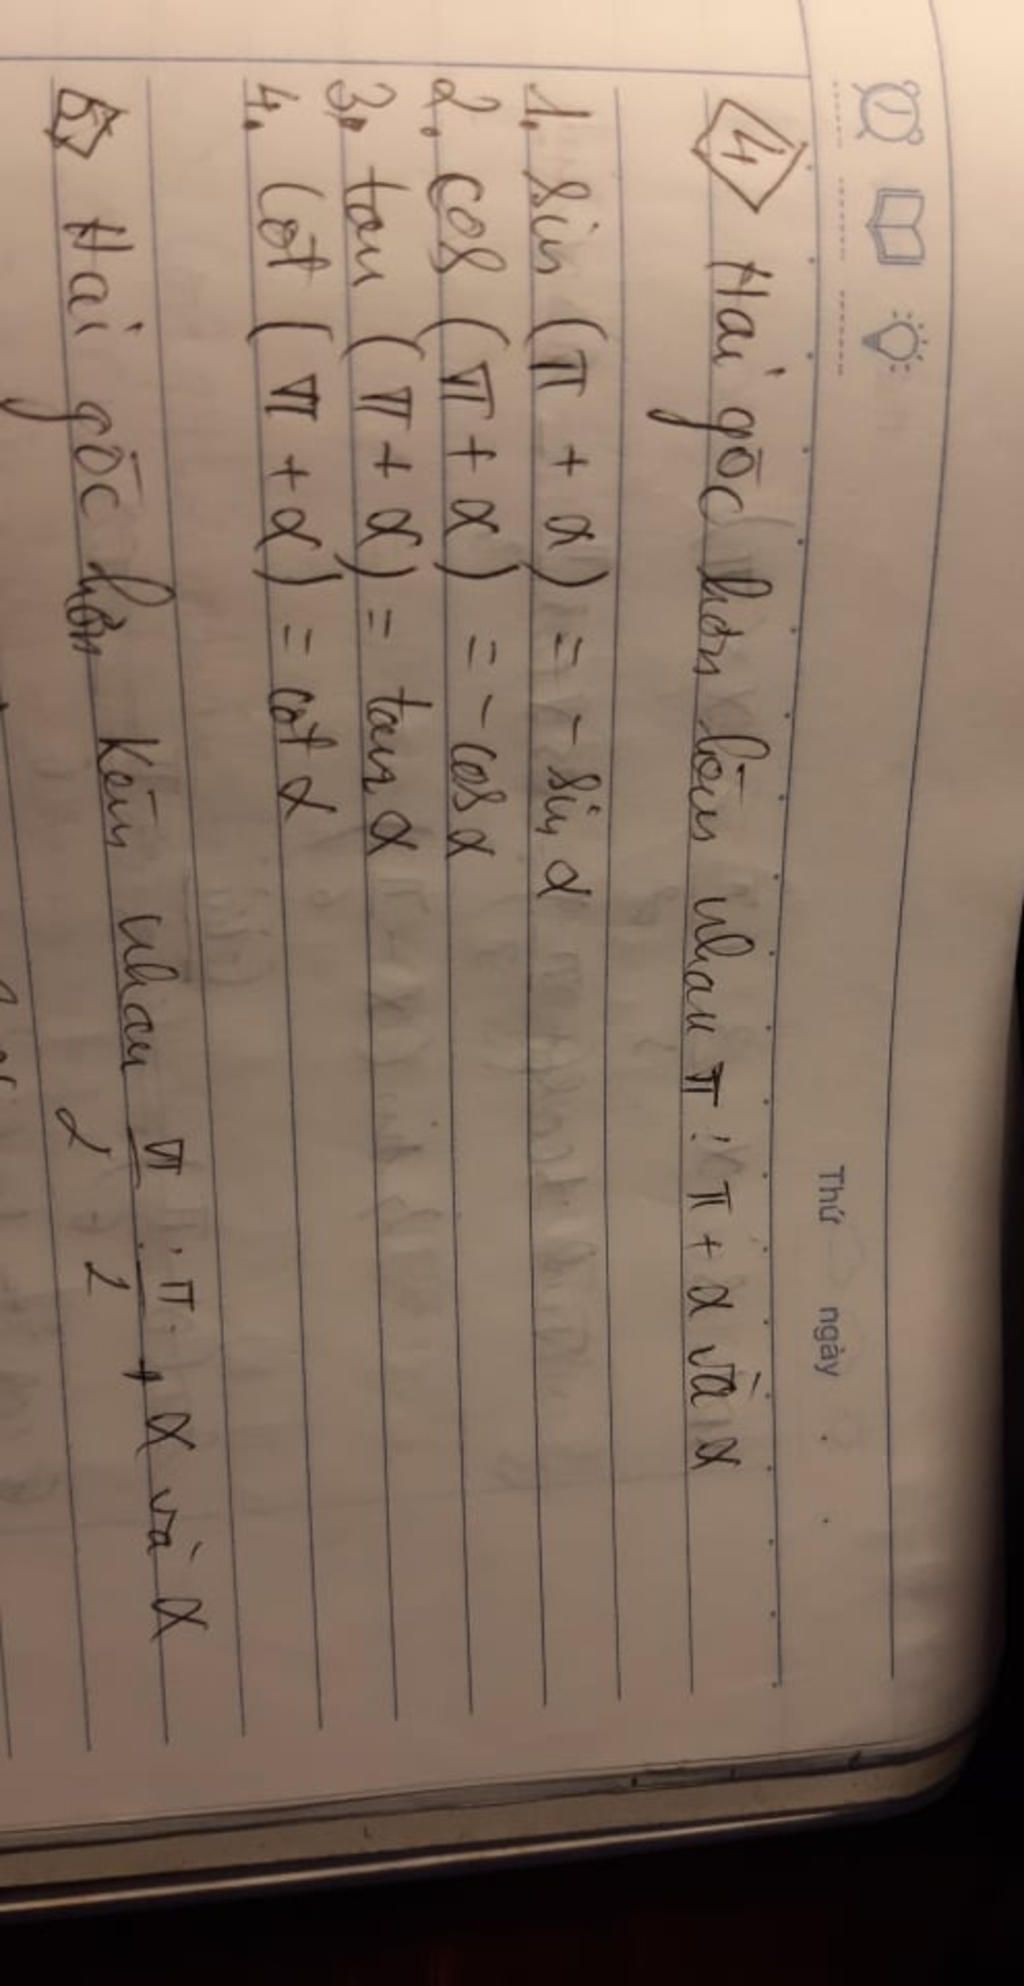 Thứ ngày
4 Hai góc hơn kém nhau π : π + α và α
1. sin (π + α) = - sin α
2. cos (π + α) = - cos α
3. tan (π + α) = tan α
4. cot (π + α) = cot α
5 Hai góc hơn kém nhau π/2 : π/2 + α và α